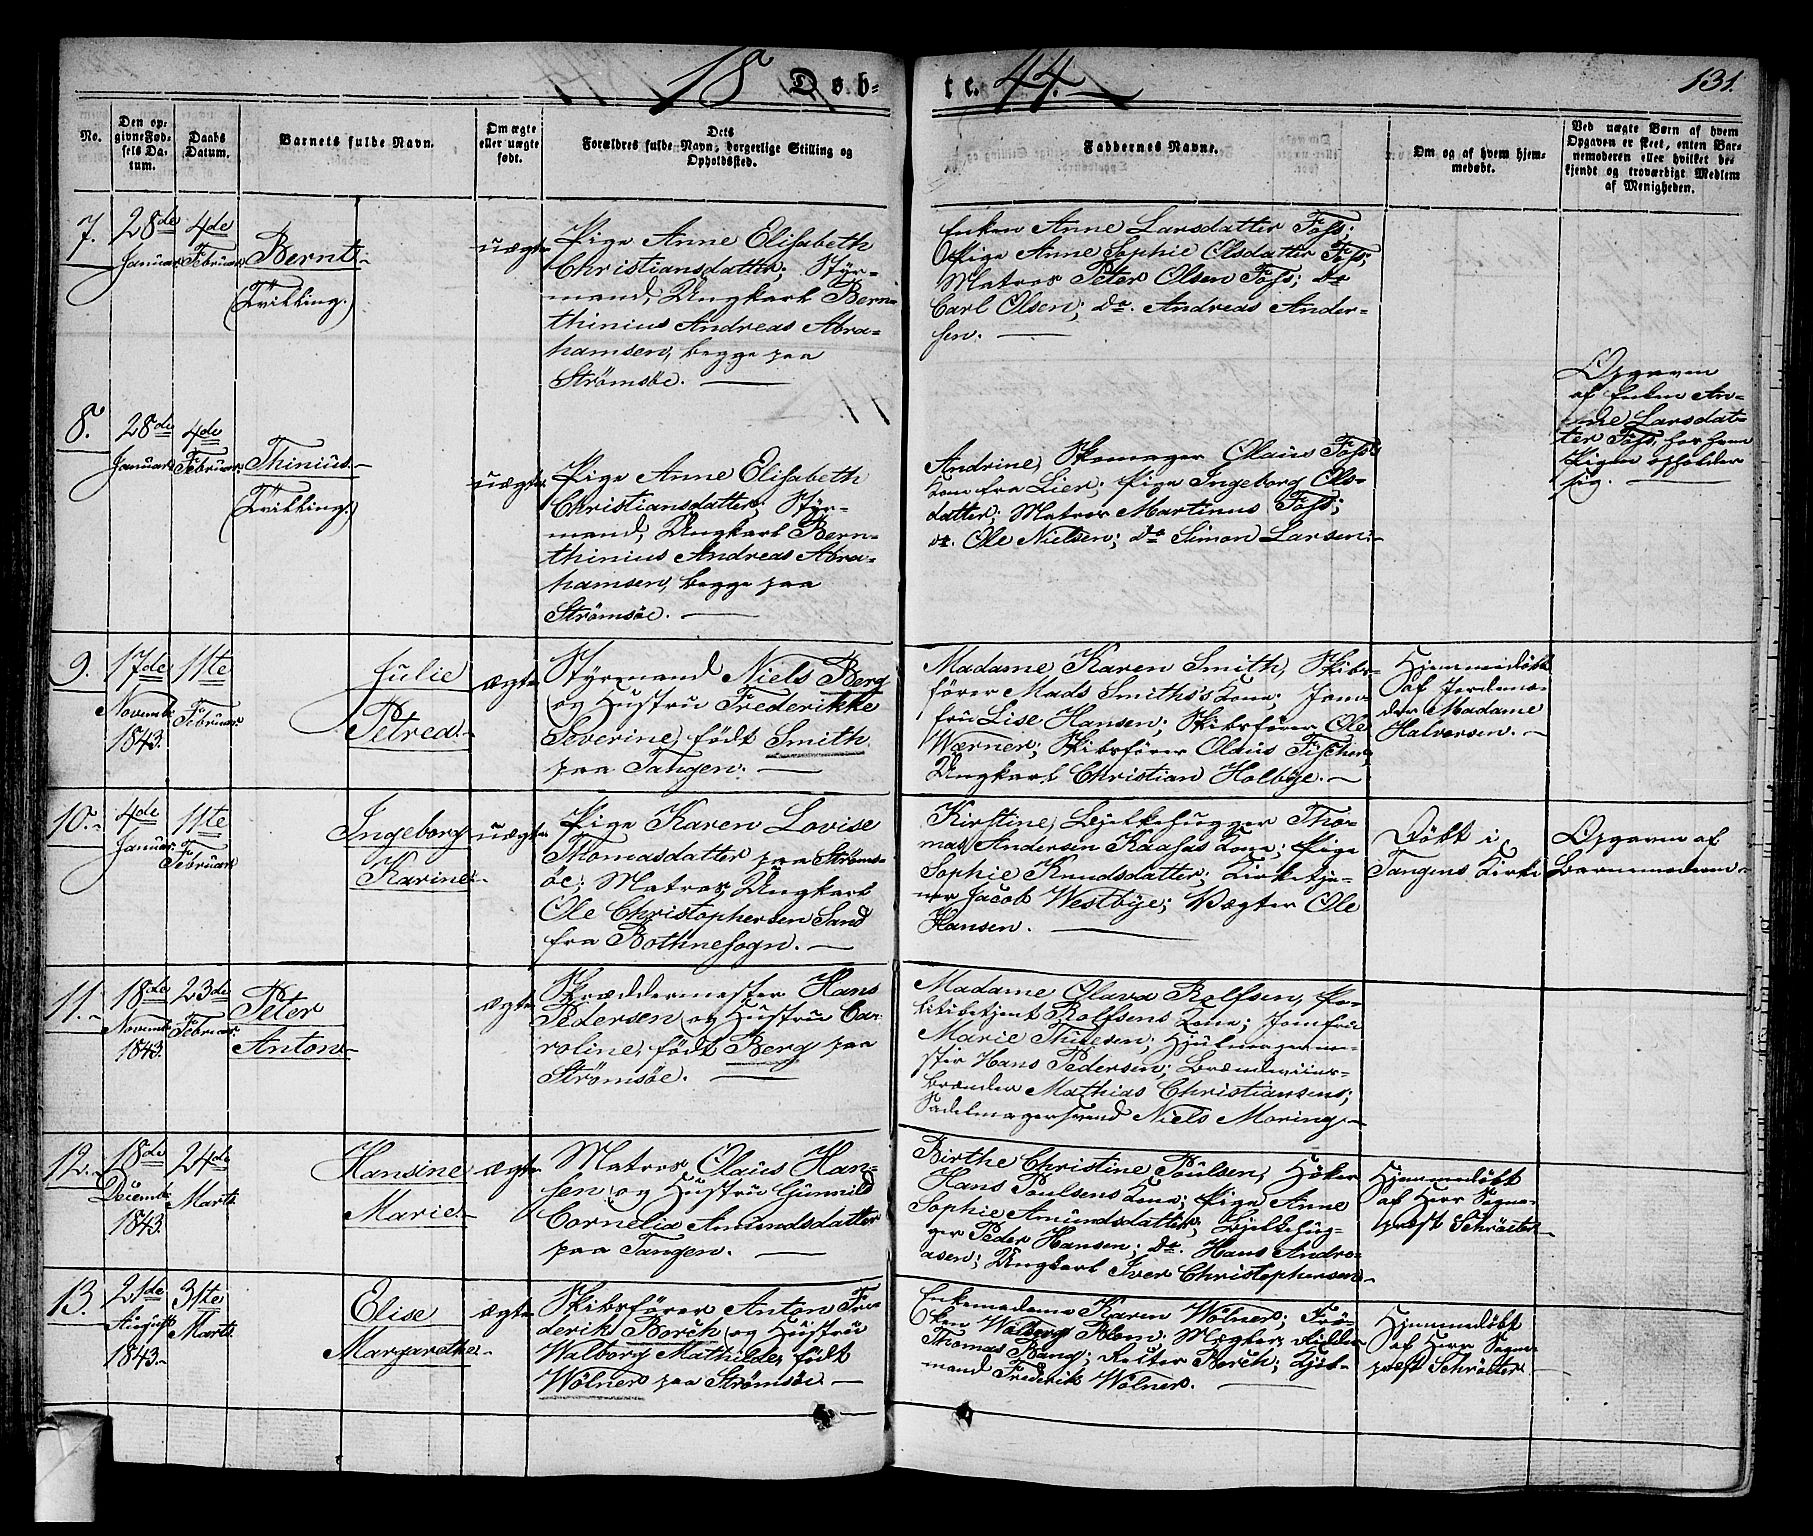 18 Døb-
te. 44.
131.
No.
Den op-
givne Fød-
sels Da-
tum.
Daabs
Datum.
Barnets fulde Navn.
Om ægte
eller uægte
født.
Dets
Forældres fulde Navn, borgerlige Stilling og
Opholdssted.
Faddernes Navne.
Om og af hvem hjem-
medøbt.
Ved uægte Børn af hvem
Opgaven er skeet, enten Bar-
nemoderen eller hvilket be-
kjendt og troværdigt Medlem
af Menigheden.
7.
28de
Januar
4de
Februar
Bernt.
(Tvilling.)
uægte
Pige Anne Elisabeth
Christiansdatter; Styr-
mand, Ungkarl Bern-
thinius Andreas Abra-
hamsen, begge paa
Strømsøe.
Enken Anne Larsdatter Foss;
Pige Anne Sophie Olsdatter Foss;
Matros Peter Olsen Foss; do
Carl Olsen; do. Andreas Ander-
sen.
8.
28de
Januar
4de
Februar
Thinius.
(Tvilling.)
uægte
Pige Anne Elisabeth
Christiansdatter; Styr-
mand, Ungkarl Bern-
thinius Andreas Abra-
hamsen, begge paa
Strømsøe.
Andrine, Skomager Olaus Foss
Kone fra Lier; Pige Ingeborg Ols-
datter; Matros Martinus Foss;
do. Ole Nielsen; do Simon Larsen.
Opgaven
af Enken An-
ne Larsdat-
ter Foss, hos hvem
Pigen opholder
sig.
9.
17de
Novembr
1843.
11te
Februar
Julie
Petrea.
ægte
Styrmand Niels Berg
og Hustru Frederikke
Severine, født Smith
paa Tangen.
Madame Karen Smith, Skibs-
fører Mads Smiths's Kone; Jom-
fru Lise Hansen; Skibsfører Ole
Wærner; Skibsfører Olaus Fischer;
Ungkarl Christian Holbye.
Hjemmedøbt
af Jordemo-
der Madame
Halvorsen.
10.
4de
Januar
11te
Februar
Ingeborg
Karine.
uægte
Pige Karen Lovise
Thomasdatter paa Strøms-
øe; Matros, Ungkarl
Ole Christophersen Sand
fra Bothnesogn.
Kirstine, Bjelkehugger Tho-
mas Andersen Kaasas Kone; Pige
Sophie Knudsdatter; Kirketje-
ner Jacob Westbye; Vægter Ole
Hansen.
Døbt i
Tangens Kirke
Opgaven af
Barnemoderen.
11.
18de
Novembr
1843.
23de
Februar
Peter
Anton.
ægte
Skræddermester Hans
Pedersen og Hustru Ca-
roline, født Berg paa
Strømsøe.
Madame Olava Rolfsen, Po-
litibetjent Rolfsens Kone; Jomfru
Marie Thuesen; Hjulmagerme-
ster Hans Pedersen; Brændeviins-
brænder Mathias Christiansens;
Sadelmagersvend Niels Moring.
12.
18de
Decembr
1843.
24de
Marts
Hansine
Marie.
ægte
Matros Olaus Han-
sen og Hustru Gunnild
Cornelia Amundsdatter
paa Tangen.
Birthe Christine Poulsen, Høker
Hans Poulsens Kone; Pige Anne
Sophie Amundsdatter; Bjelkehug-
ger Peder Hansen; do. Hans Andre-
asen; Ungkarl Iver Christophersen.
Hjemmedøbt
af Herr Sogne-
præst Schrøeter.
13.
21de
August
1843.
31te
Marts
Elise
Margarethe.
ægte
Skibsfører Anton Fre-
derik Borch og Hustru
Walborg Mathilde, født
Wölner paa Strømsøe.
Enkemadame Karen Wölner; Frø-
ken Walborg Blom; Mægler, Ridder
Thomas Bang; Reder Borch; Kjøb-
mand Frederik Wölner.
Hjemmedøbt
af Herr Sogne-
præst Schrøeter.